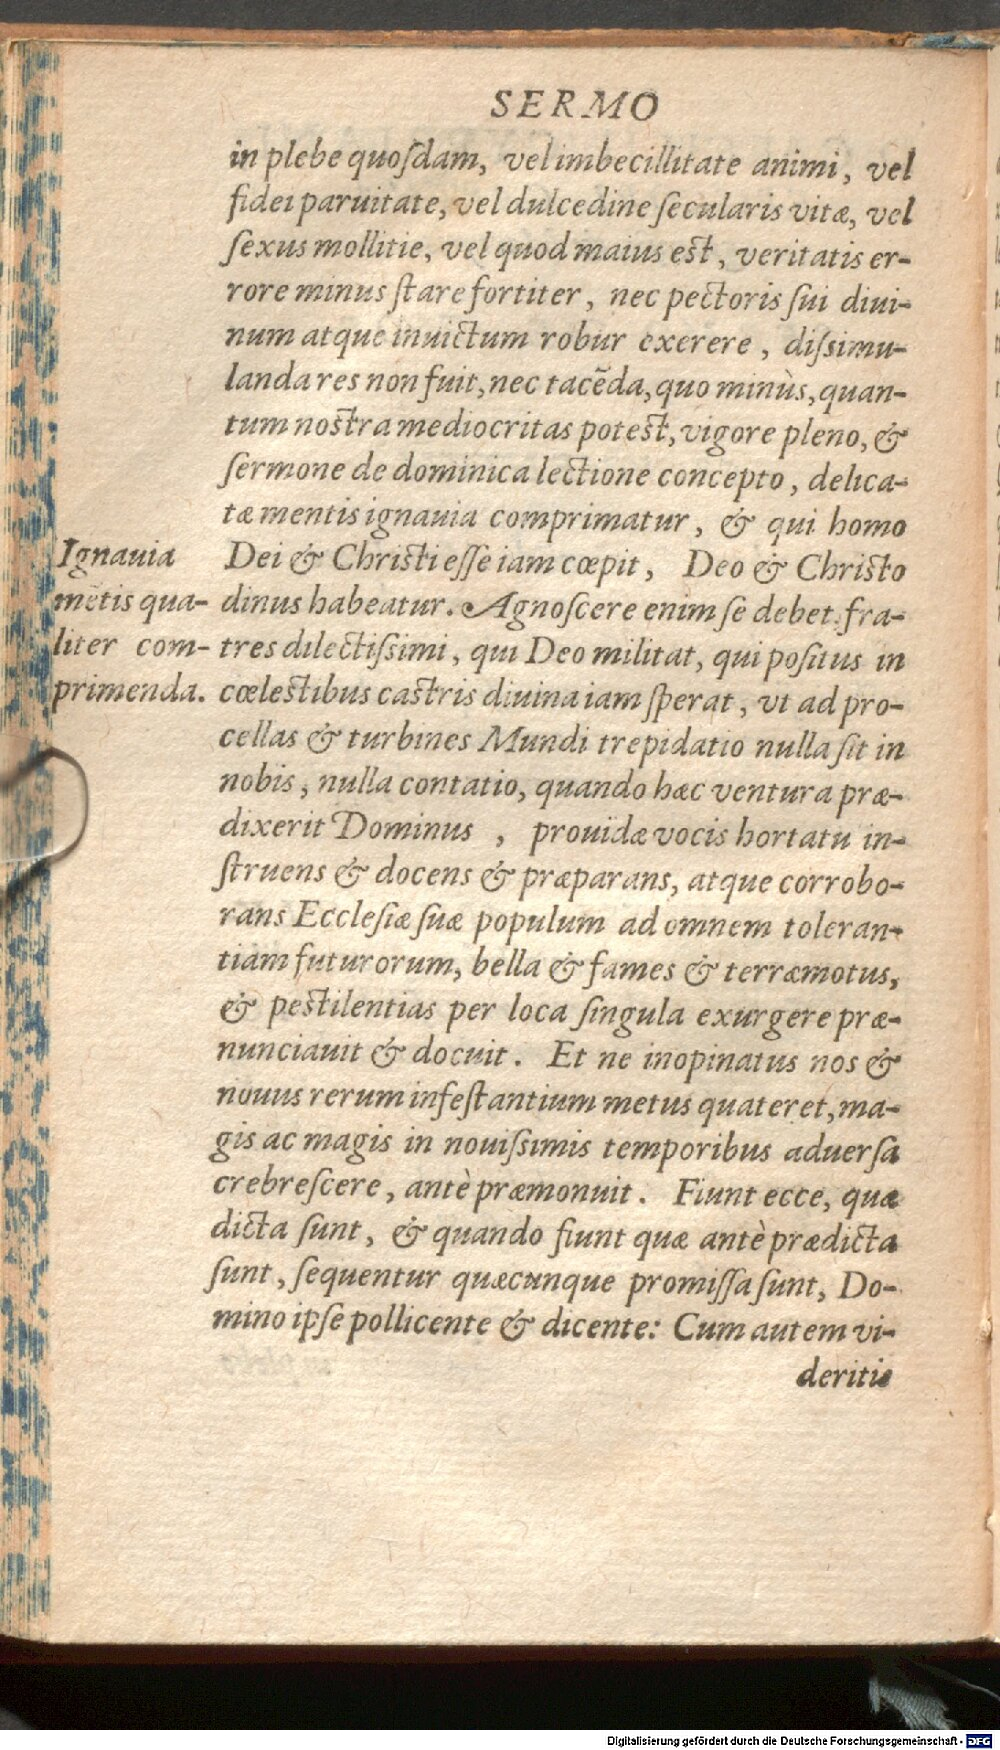 SERMO
in plebe quoſdam, vel imbecillitate animi, vel
fidei paruitate, vel dulcedine ſecularis vitæ, vel
ſexus mollitie, vel quod maius est, veritatis er-
rore minus ſtare fortiter, nec pectoris ſui diui-
num atque inuictum robur exerere, diſsimu-
landa res non fuit, nec tacẽda, quo minùs, quan-
tum nostra mediocritas potest, vigore pleno, &
ſermone de dominica lectione concepto, delica-
tæ mentis ignauia comprimatur, & qui homo
Dei & Christi eſſe iam cœpit, Deo & Christo
dinus habeatur. Agnoſcere enim ſe debet fra-
tres dilectiſsimi, qui Deo militat, qui poſitus in
cœlestibus castris diuina iam ſperat, vt ad pro-
cellas & turbines Mundi trepidatio nulla ſit in
nobis, nulla contatio, quando hæc ventura præ-
dixerit Dominus, prouidæ vocis hortatu in-
ſtruens & docens & præparans, atque corrobo-
rans Eccleſiæ ſuæ populum ad omnem toleran-
tiam futurorum, bella & fames & terræmotus,
& pestilentias per loca ſingula exurgere præ-
nunciauit & docuit. Et ne inopinatus nos &
nouus rerum infeſtantium metus quateret, ma-
gis ac magis in nouiſsimis temporibus aduerſa
crebreſcere, antè præmonuit. Fiunt ecce, quæ
dicta ſunt, & quando fiunt quæ antè prædicta
ſunt, ſequentur quæcunque promiſſa ſunt, Do-
mino ipſe pollicente & dicente: Cum autem vi-
deritis
Ignauia
mẽtis qua-
liter com-
primenda.
Digitalisierung gefördert durch die Deutsche Forschungsgemeinschaft - DFG